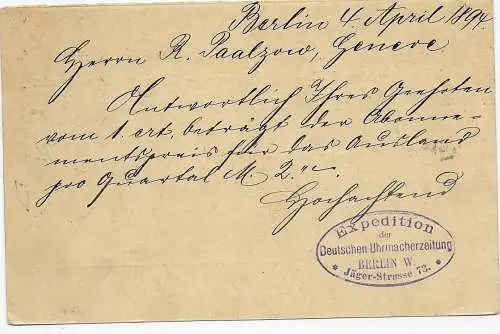 Berlin 4 April 1894.
Herrn R. Paalzow, Geneve.
Antwortlich Ihres Geehrten
vom 1. crt. beträgt der Abonne-
mentspreis für das Ausland
pro Quartal M 2."
Hochachtend
Expedition
der
Deutschen Uhrmacherzeitung
BERLIN W.
* Jäger-Strasse 73. *